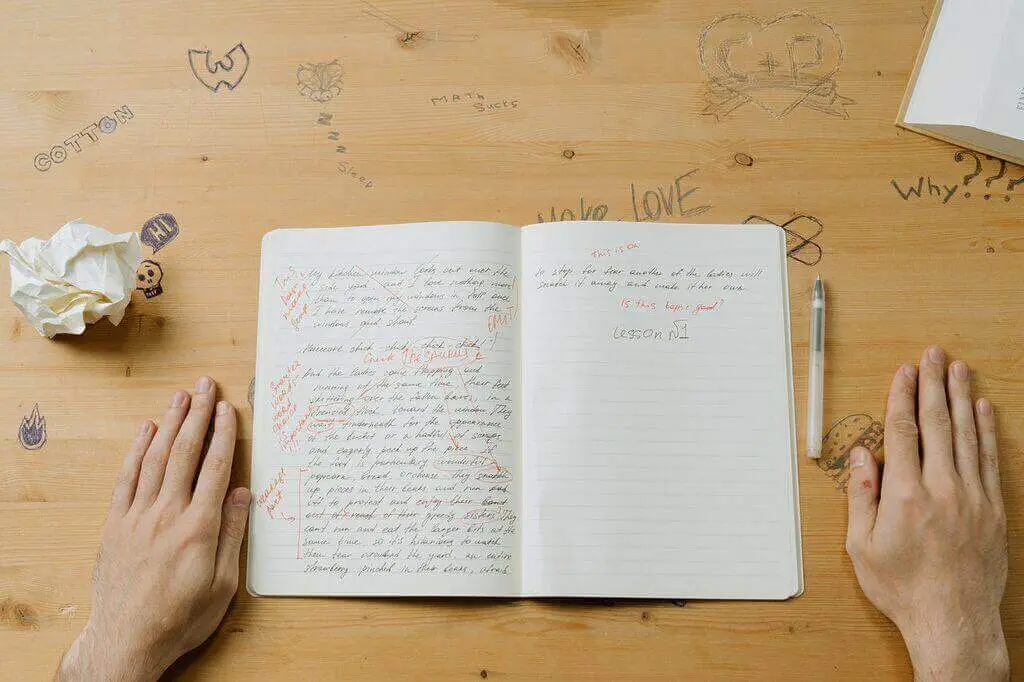 W
CP
MATH
SUCKS
COTTON
Sleep
Why???
MAKE LOVE
HI
My kitchen window looks out over the
side yard, and I love nothing more
than to open my windows in fall once
I have remove the screens from the
windows and shout
EMIT!
chick-chick-chick-chick!"
Check THESAURUS
But the ladies come flapping and
running at the same time, their feet
skittering over the fallen leaves, in a
flock toward the window. They
wait underneath for the appearance
of the bucket or a handful of scraps,
and eagerly pick up the piece. If
the food is particulary wonderful
popcorn, bread or cheese they snatch
up pieces in their beaks and run
off to protect and enjoy their
out of reach of their greedy sisters. They
can't run and eat the larger bits at the
same time, so it's hilarious to watch
them tear around the yard, an entire
strawberry pinched in their beaks, afraid
This is OK
to stop for fear another of the ladies will
snatch it away and make it her own.
Is this topic good?
Lesson №1